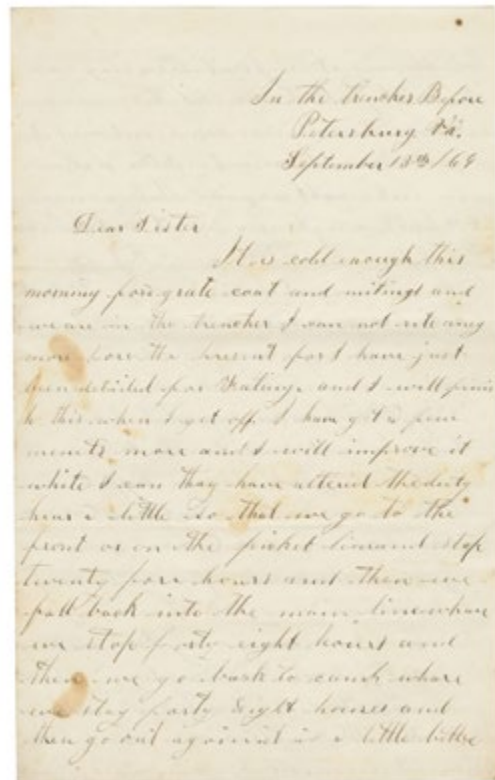 In the trenches Before
Petersburg Va.
September 13th/64
Dear Sister
It is cold enough this
morning for grate coat and mitings and
we are in the trenches I can not rite any
more fore the present for I have just
been detailed for Fatiuge and I will finis
h this when I get off I have got a few
menits more and I will improve it
while I can thay have altered the duty
hear a little so that we go to the
front or on the picket line and stop
twenty fore hours and then we
fall back into the main line whare
we stop forty eight hours and
then we go back to camp whare
we stay forty eight houres and
then go out again it is a little better